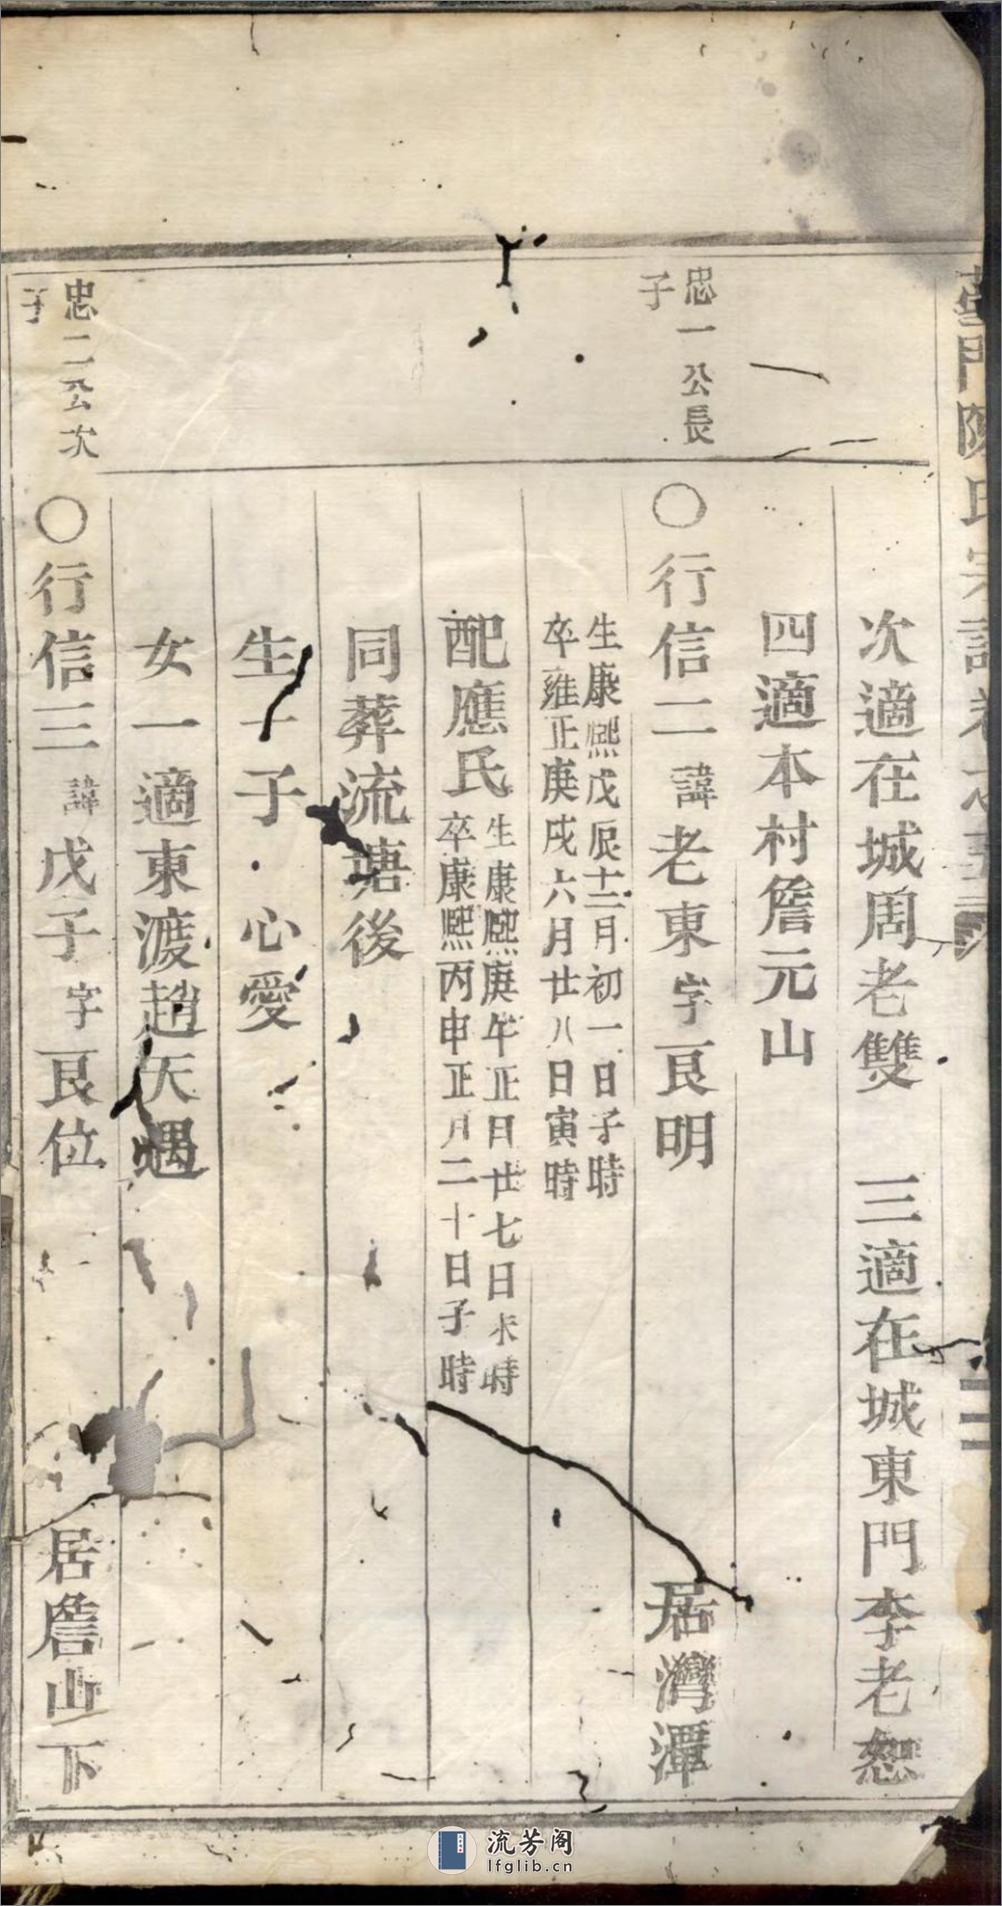 門陳氏宗譜卷之
次適在城周老雙　三適在城東門李老恕
四適本村詹元山
忠一公長子
○行信二諱老東字艮明　居灣潭
生康熙戊辰十二月初一日子時
卒雍正庚戌六月廿八日寅時
配應氏
生康熙庚午正月廿七日未時
卒康熙丙申正月二十日子時
同葬流塘後
生一子　心愛
女一適東渡趙天遇
忠二公次子
○行信三諱戊子字艮位　居詹山下
流芳阁
lfglib.cn